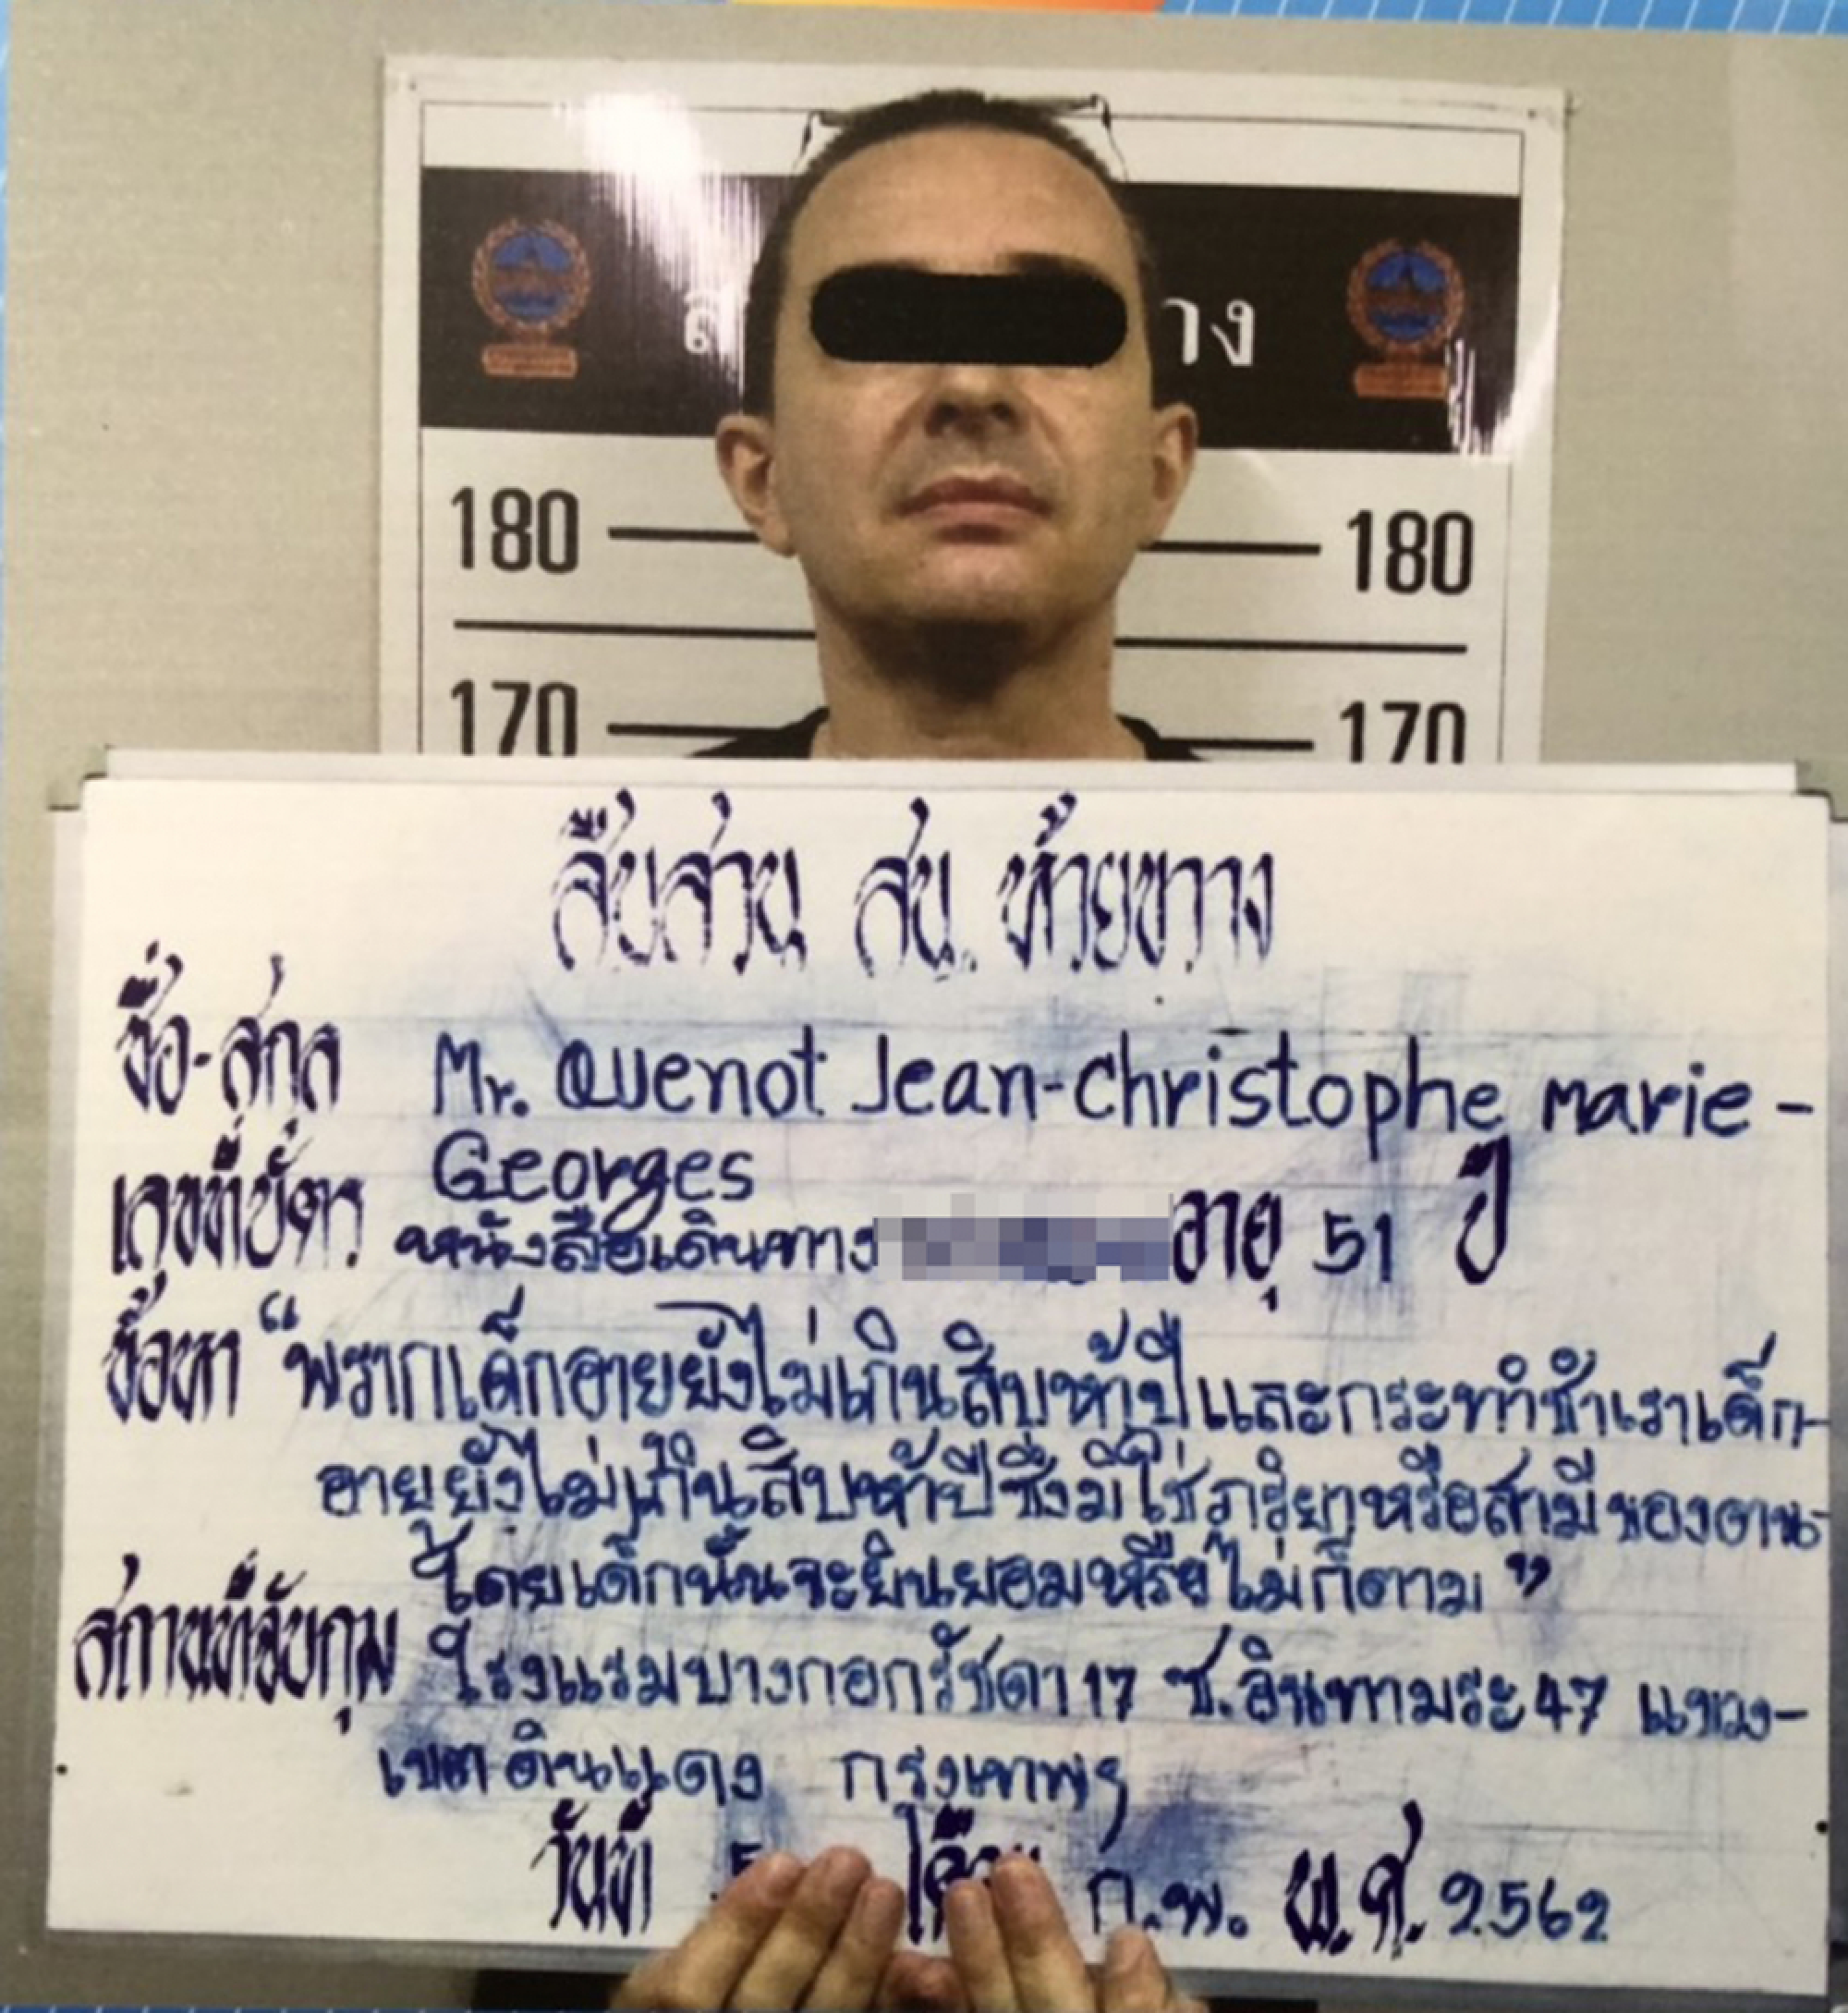 180 180
170 170
สืบสวน สน. ห้วยขวาง
ชื่อ-สกุล Mr. Quenot Jean-Christophe Marie-
Georges
เลขที่บัตร หนังสือเดินทาง อายุ 51 ปี
ข้อหา “พรากเด็กอายุยังไม่เกินสิบห้าปีและกระทำชำเราเด็ก
อายุยังไม่เกินสิบห้าปีซึ่งมิใช่ภริยาหรือสามีของตน
โดยเด็กนั้นจะยินยอมหรือไม่ก็ตาม”
สถานที่จับกุม โรงแรมบางกอกรัชดา17 ซ.อินทามระ47 แขวง-
เขตดินแดง กรุงเทพฯ
วันที่ 5 เดือน ก.พ. พ.ศ. 2562